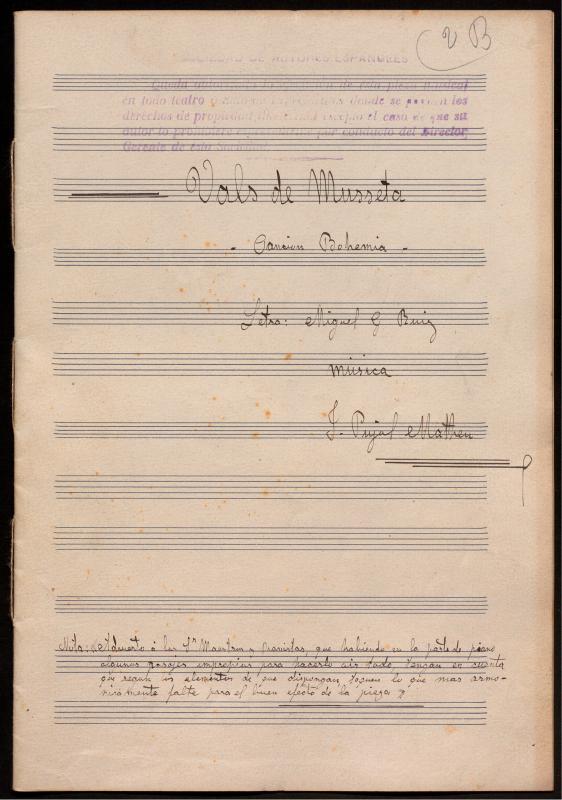 V B
SOCIEDAD DE AUTORES ESPAÑOLES
Queda autorizada la ejecución de esta pieza musical
en todo teatro donde se perciban los
derechos de propiedad, excepto el caso de que su
autor lo prohibiere por conducto del Director
Gerente de esta Sociedad.
Vals de Musseta
- Cancion Bohemia -
Letra: Miguel G Ruiz
música
J. Pujol Matheu
Nota: Advierto á los Srs Maestros y pianistas, que habiendo en la parte de piano
algunos pasajes impropios para hacerlo todo, tengan en cuenta
que segun los elementos de que dispongan, toquen lo que mas armo-
nicamente falte para el buen efecto de la pieza